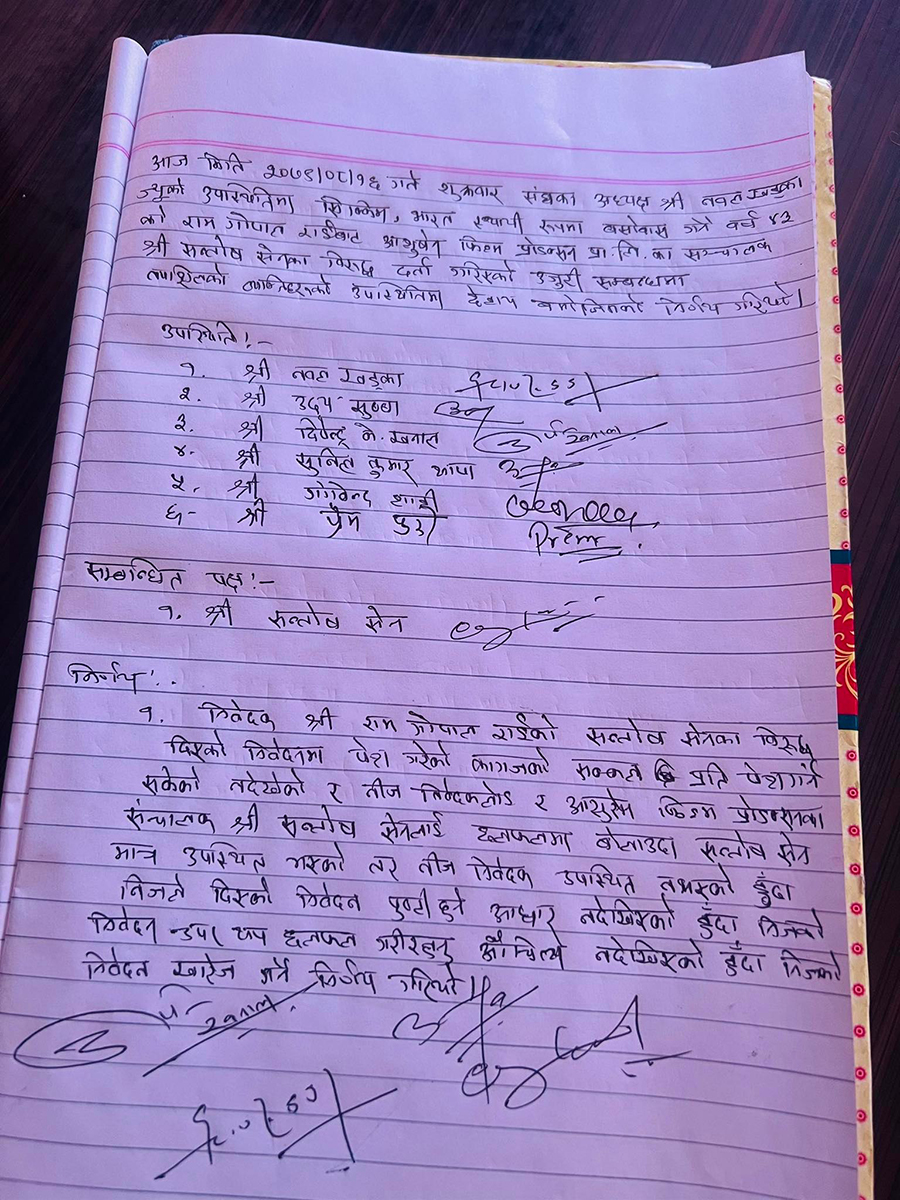 आज मिति २०७९।०८।१६ गते शुक्रवार संघका अध्यक्ष श्री नवल खड्का
ज्यूको उपस्थितिमा सिक्किम, भारत स्थायी रुपमा बसोबास गर्ने वर्ष ४३
को राम गोपाल राईबाट आशुषेन फिल्म प्रोडक्सन प्रा.लि. का सञ्चालक
श्री सन्तोष सेनका विरुद्ध दर्ता गरिएको उजुरी सम्बन्धमा
तपाशिलको व्यक्तिहरुको उपस्थितिमा देहाय बमोजिमको निर्णय गरियो।
उपस्थिति :-
१. श्री नवल खड्का
२. श्री उदय सुब्बा
३. श्री दिपेन्द्र के. खनाल
४. श्री सुनिल कुमार थापा
५. श्री शाही
६- श्री प्रेम पुरी
Prem
सम्बन्धित पक्ष :-
१. श्री सन्तोष सेन
निर्णय :..
१. निवेदक श्री राम गोपाल राईको सन्तोष सेनका विरुद्ध
दिएको निवेदनमा पेश गरेको कागजको सक्कल प्रति पेश गर्न
सकेको नदेखेको र नीज निवेदकलाई र आशुसेन फिल्म प्रोडक्सनका
संन्चालक श्री सन्तोष सेनलाई छलफलमा बोलाउदा सन्तोष सेन
मात्र उपस्थित भएको तर नीज निवेदक उपस्थित नभएको हुँदा
निजले दिएको निवेदन पुष्टी हुने आधार नदेखिएको हुँदा निजको
निवेदन उपर थप छलफल गरीरहनु औचित्य नदेखिएको हुँदा निजको
निवेदन खारेज गर्ने निर्णय गरियो।